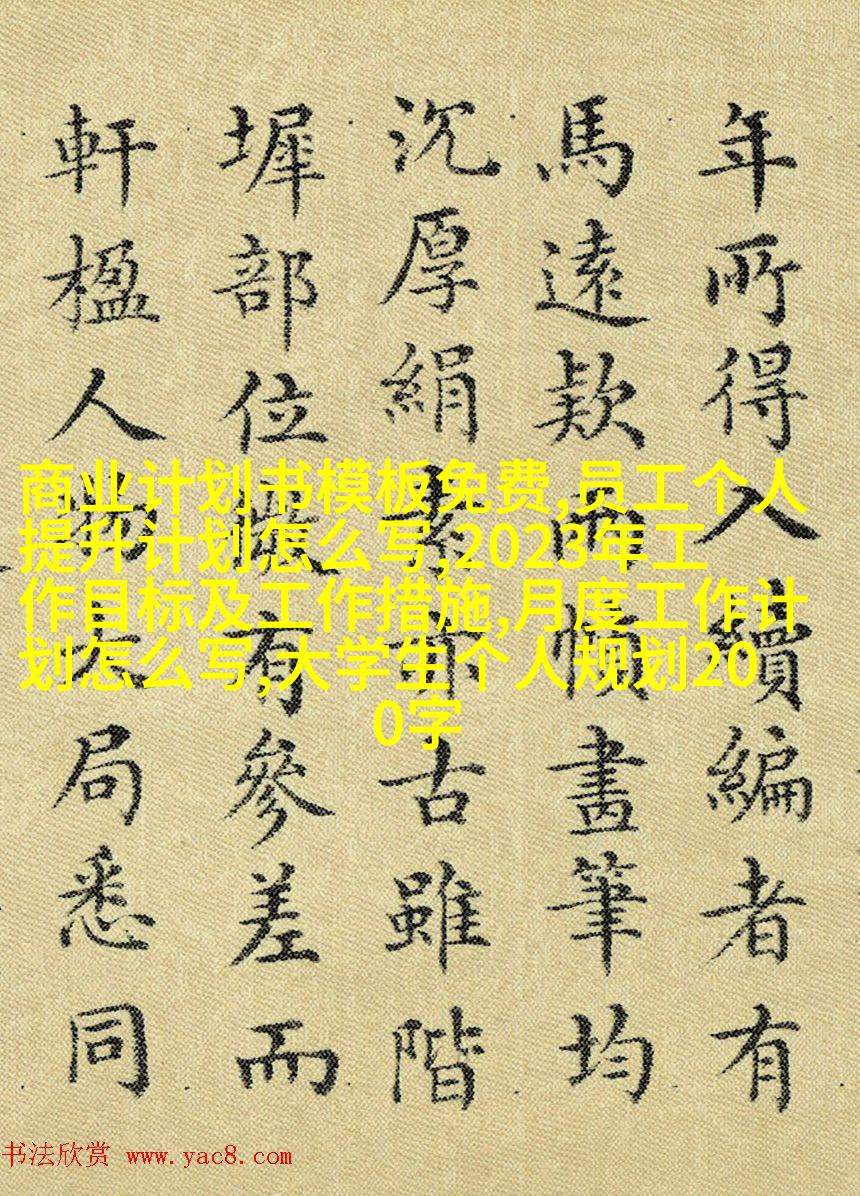 年所得入續編者有
馬遠款兩幀畫筆均
沉厚絹素亦古雖階
墀部位有參差而
軒楹人物大局悉同
商业计划书模板免费,员工个人
提升计划怎么写,2023年工
作目标及工作措施,月度工作计
划怎么写,大学生个人规划20
0字
书法欣赏 www.yac8.com